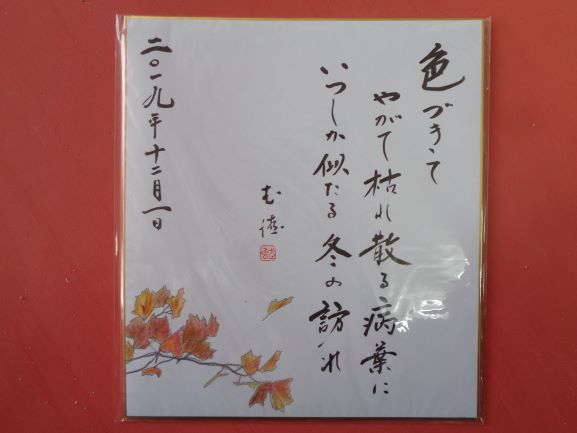 色づきて
やがて枯れ散る病葉に
いつしか似たる冬の訪れ
二〇一九年十二月一日